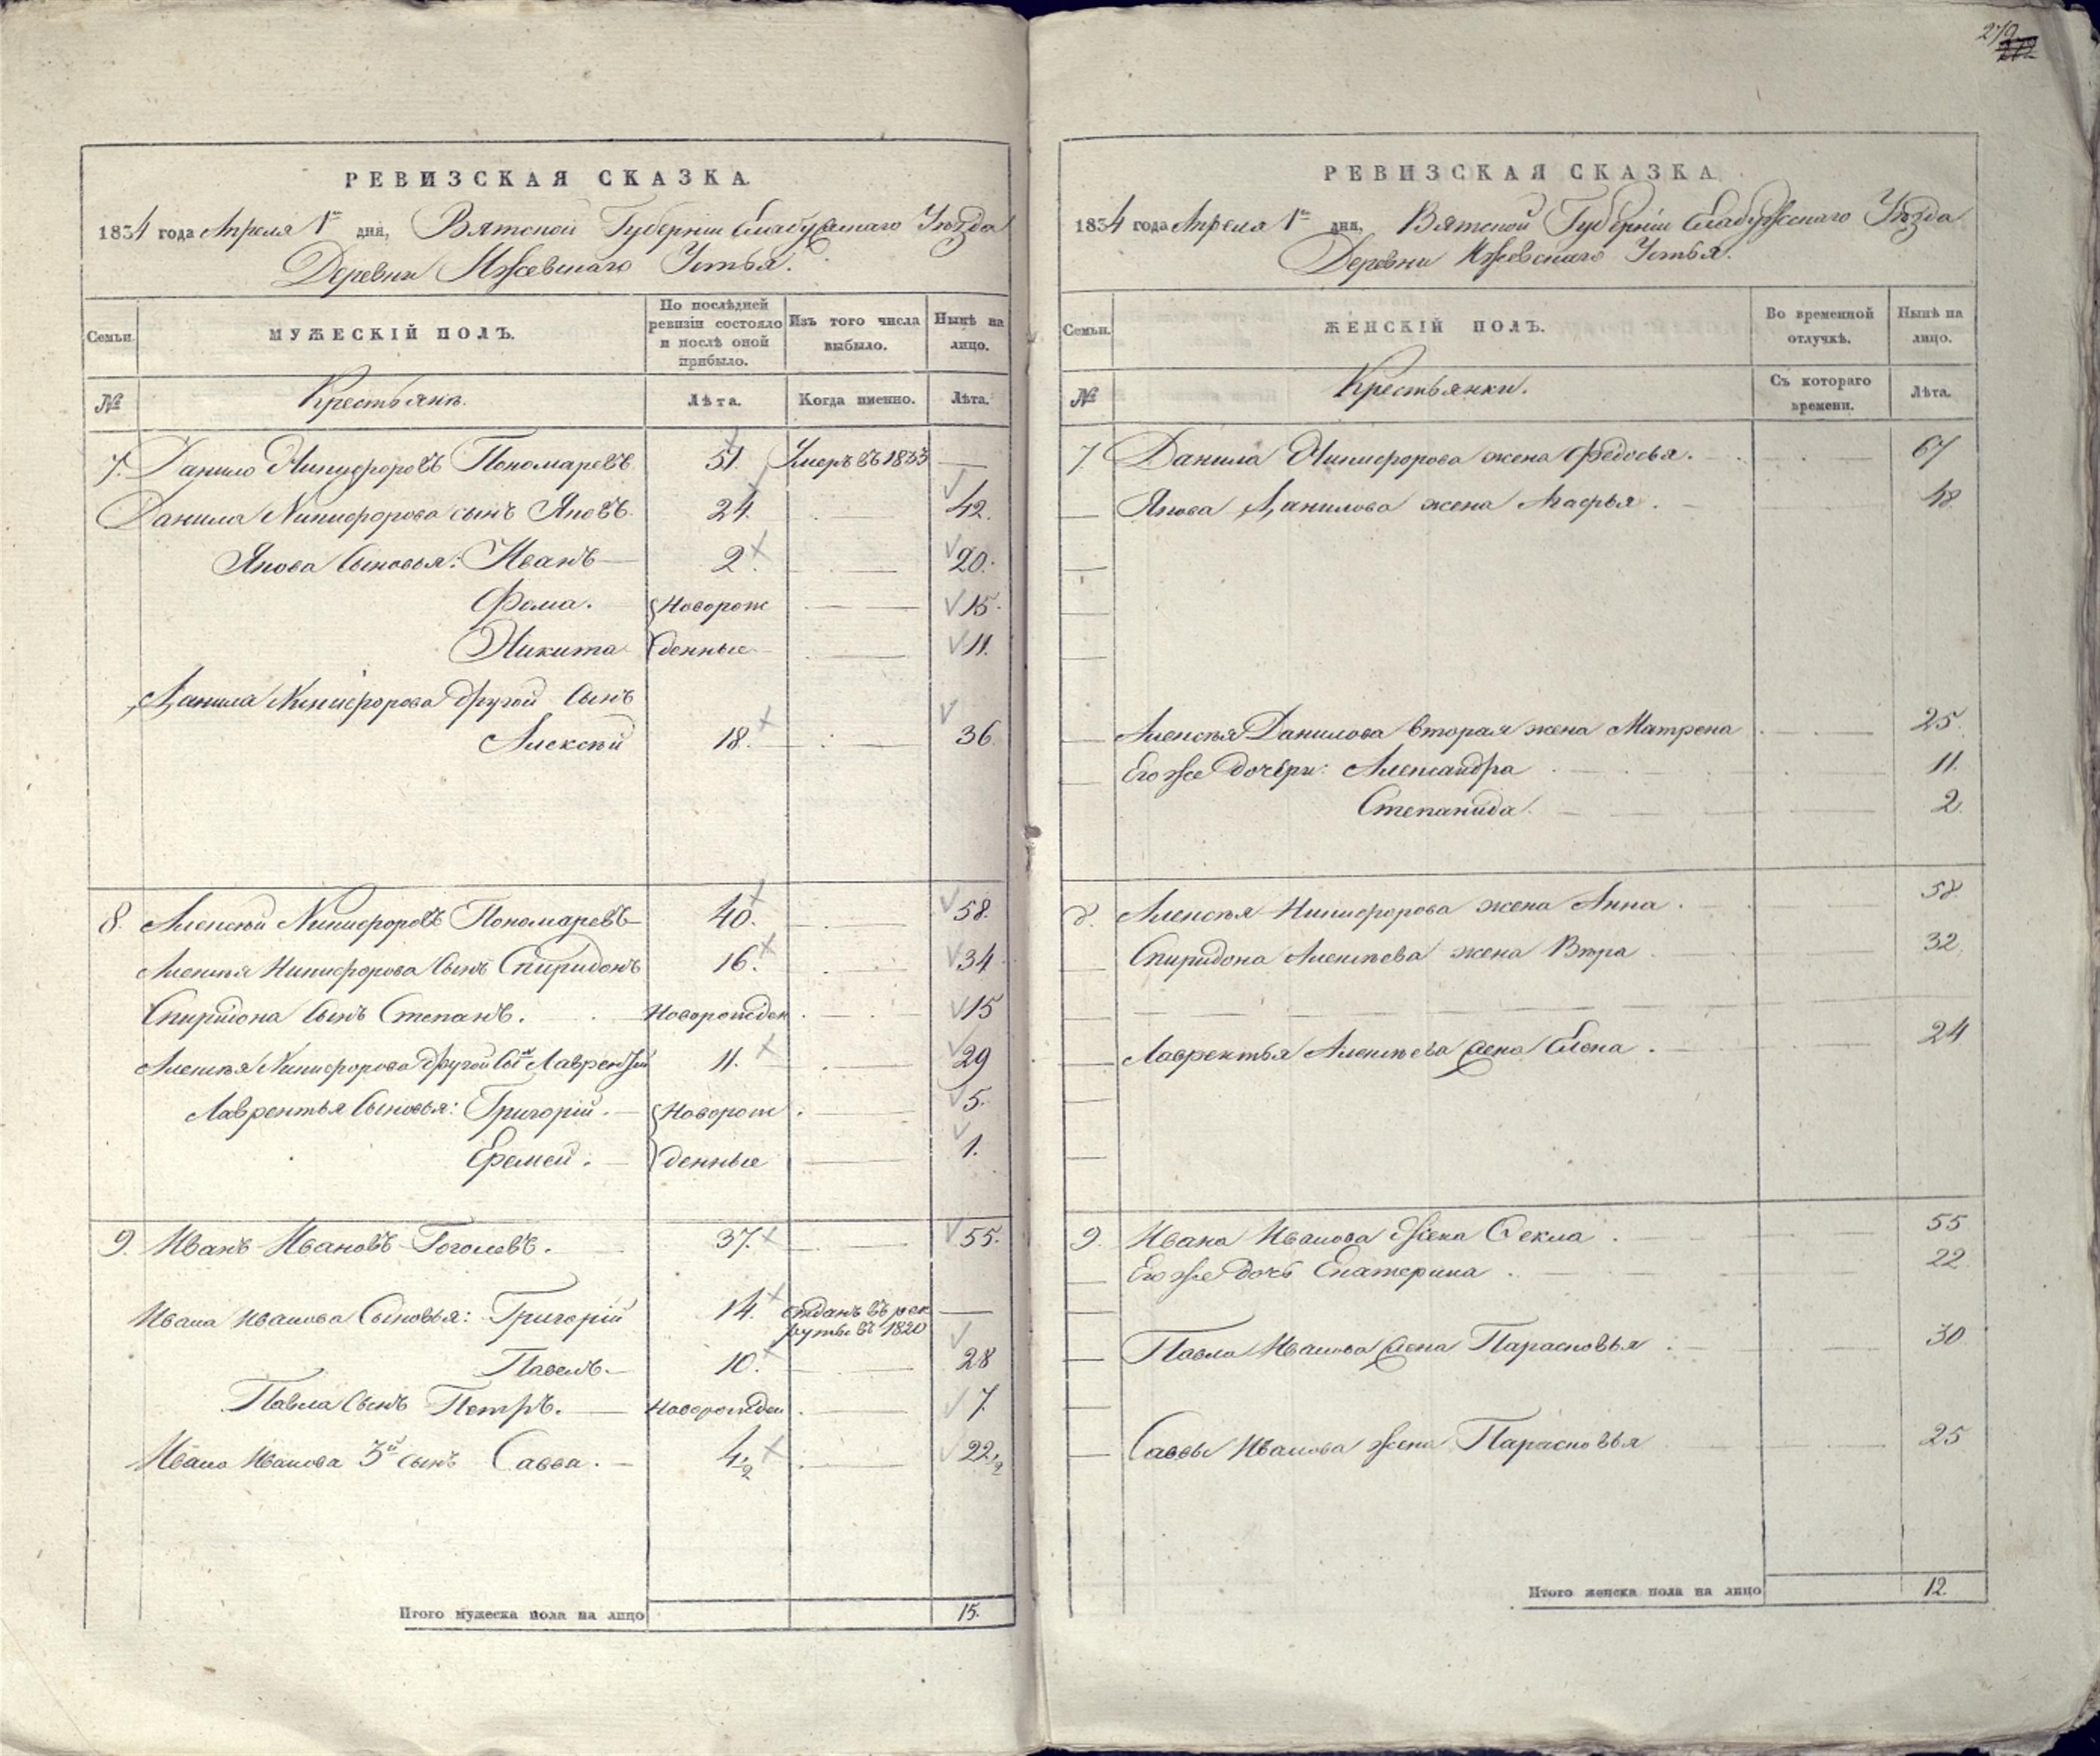 279
272
РЕВИЗСКАЯ СКАЗКА.
1834 года Апреля 1го дня, Вятской Губерніи Елабужскаго Уѣзда
Деревни Ижевскаго Устья.
Семьи.
МУЖЕСКІЙ ПОЛЪ.
По послѣдней ревизіи состояло и послѣ оной прибыло.
Изъ того числа выбыло.
Нынѣ на лицо.
№
Крестьянъ.
Лѣта.
Когда именно.
Лѣта.
7. Данило Никифоровъ Пономаревъ 51. Умеръ въ 1833 —
Данила Никифорова сынъ Яковъ. 24. 42.
Якова Сыновья: Иванъ 2. 20.
Фома. Новорож 15.
Никита денные 11.
Данила Никифорова другой Сынъ
Алексѣй 18. 36.
8. Алексѣй Никифоровъ Пономаревъ 40. 58.
Алексѣя Никифорова Сынъ Спиридонъ 16. 34
Спиридона Сынъ Степанъ. Новорожден 15
Алексѣя Никифорова другой Сынъ Лаврентій 11. 29
Лаврентья Сыновья: Григорій. Новорож 5.
Еремей. денные 1.
9. Иванъ Ивановъ Гоголевъ. 37. 55.
Ивана Иванова Сыновья: Григорій 14. отданъ въ рек
руты въ 1820 —
Павелъ 10. 28
Павла Сынъ Петръ. Новорожден 7.
Ивана Иванова 3й сынъ Савва. 4½ 22½
Итого мужеска пола на лицо 15.
РЕВИЗСКАЯ СКАЗКА.
1834 года Апреля 1го дня, Вятской Губерніи Елабужскаго Уѣзда
Деревни Ижевскаго Устья.
Семьи.
ЖЕНСКІЙ ПОЛЪ.
Во временной отлучкѣ.
Нынѣ на лицо.
№
Крестьянки.
Съ котораго времени.
Лѣта.
7. Данила Никифорова жена Федосья. 67
Якова Данилова жена Марфья. 48
Алексѣя Данилова вторая жена Матрена 25.
Его же дочери: Александра 11.
Степанида. 2.
8. Алексѣя Никифорова жена Анна. 58.
Спиридона Алексѣева жена Вѣра 32.
Лаврентья Алексѣева жена Елена. 24
9. Ивана Иванова Жена Секла. 55
Его же дочь Екатерина. 22
Павла Иванова жена Парасковья. 30.
Саввы Иванова жена Парасковья 25
Итого женска пола на лицо 12.